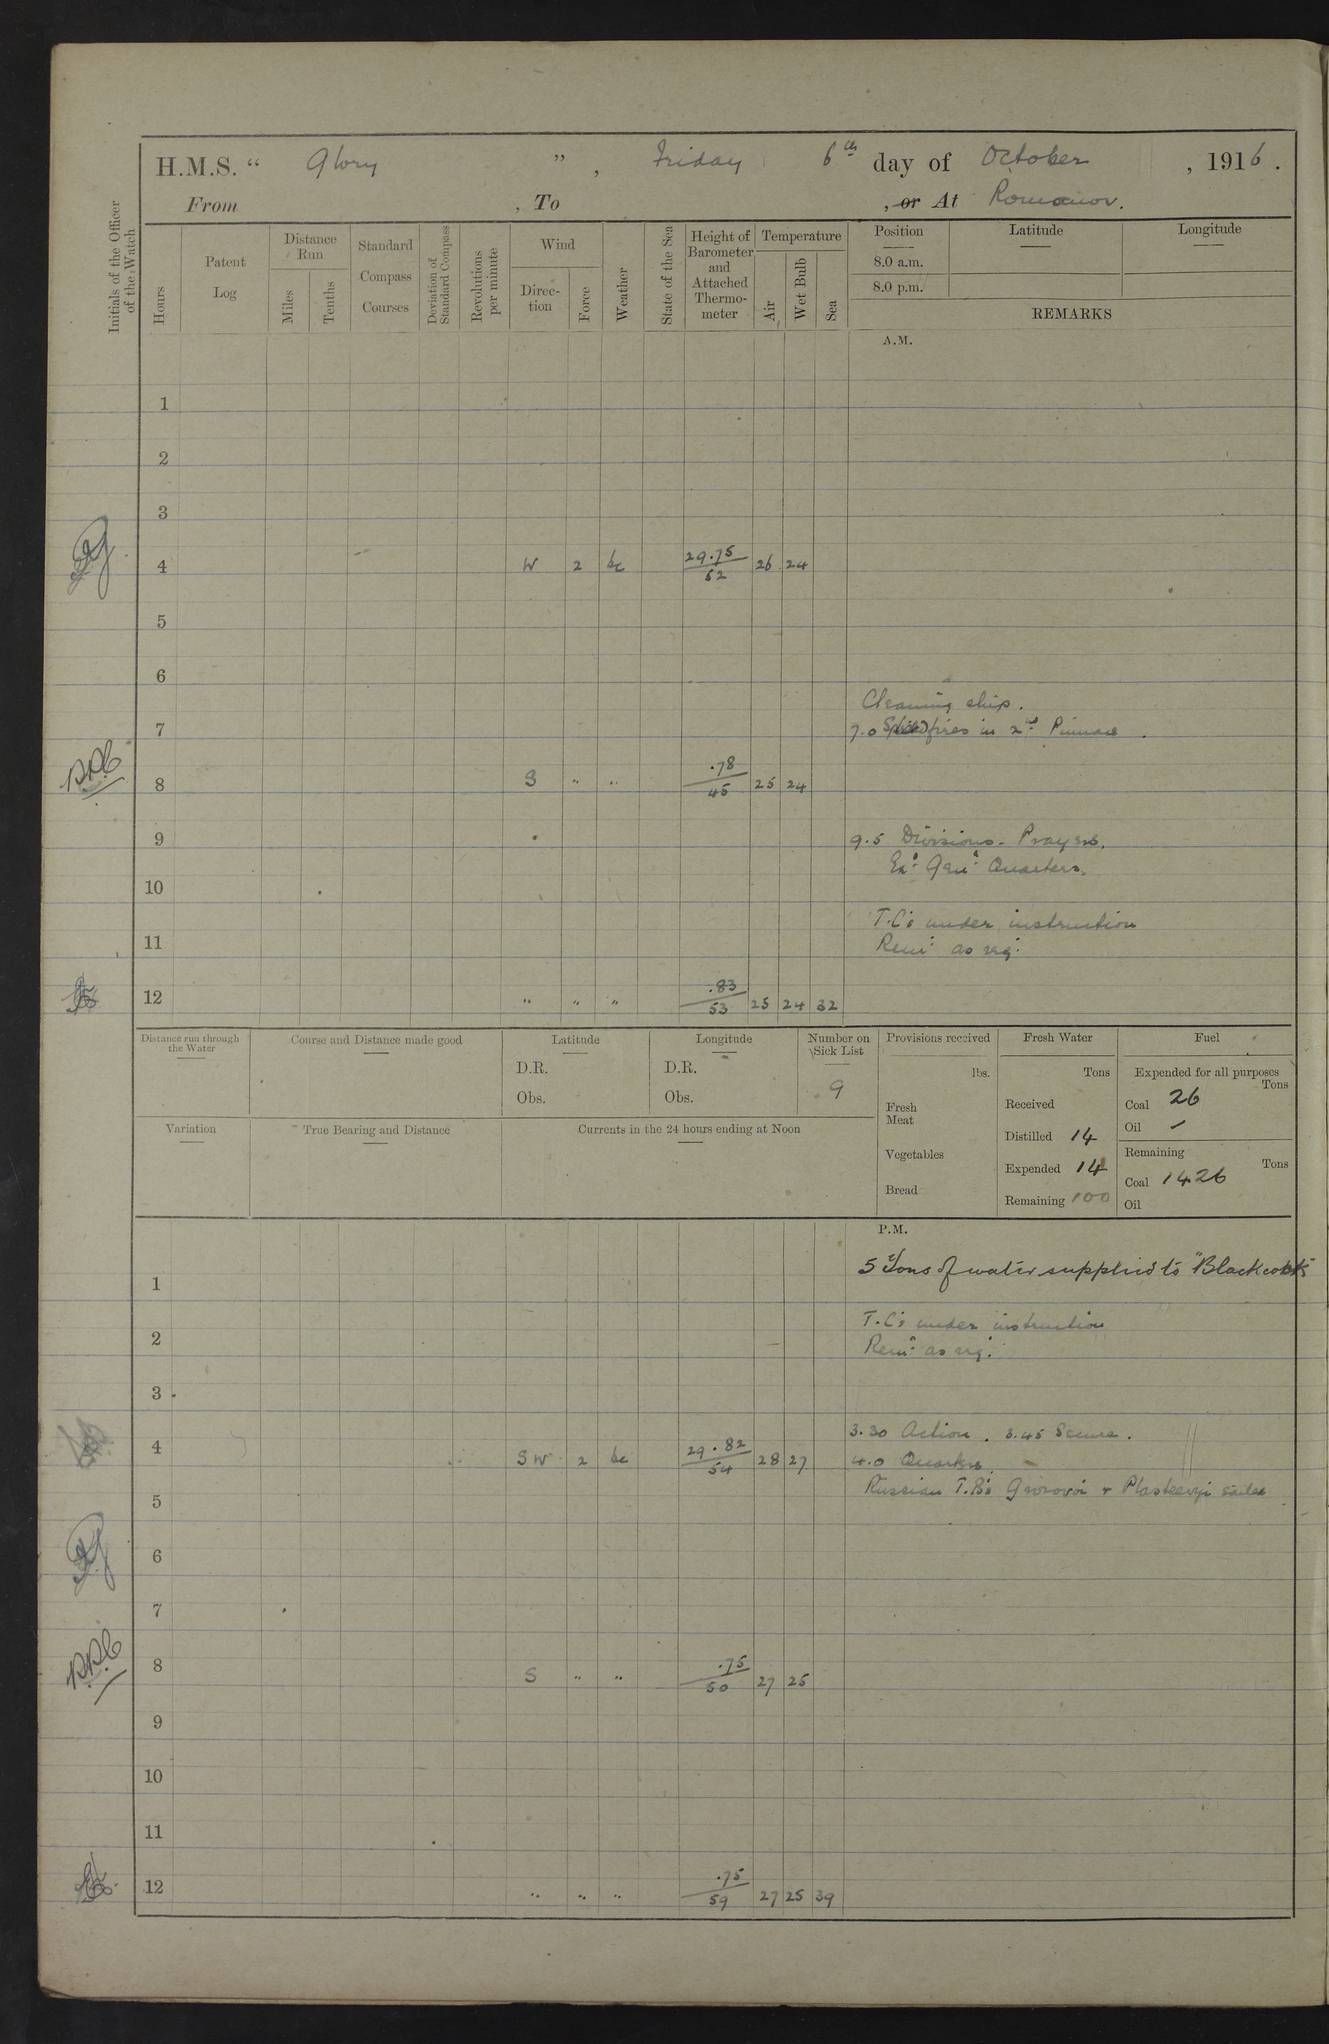 H.M.S. “ Glory ”, Friday 6th day of October, 1916.
From , To , or At Romanov.
Initials of the Officer of the Watch
Hours
Patent Log
Distance Run
Miles
Tenths
Standard Compass Courses
Deviation of Standard Compass
Revolutions per minute
Wind
Direction
Force
Weather
State of the Sea
Height of Barometer and Attached Thermometer
Temperature
Air
Wet Bulb
Sea
Position
8.0 a.m.
8.0 p.m.
Latitude
Longitude
REMARKS
A.M.
1
2
3
4 W 2 bc 29.75/52 26 24
5
6
Cleaning ship.
7 7.0 fires in 2nd Pinnace.
8 S " " .78/45 25 24
9 9.5 Divisions. Prayers.
Exd Genl Quarters.
10
T.C's under instruction
11 Remr as req.
12 " " " .83/53 25 24 32
Distance run through the Water
Course and Distance made good
Latitude
D.R.
Obs.
Longitude
D.R.
Obs.
Number on Sick List
9
Provisions received
lbs.
Fresh Meat
Vegetables
Bread
Fresh Water
Tons
Received
Distilled 14
Expended 14
Remaining 100
Fuel
Expended for all purposes
Tons
Coal 26
Oil –
Remaining
Tons
Coal 1426
Oil
Variation
True Bearing and Distance
Currents in the 24 hours ending at Noon
P.M.
5 Tons of water supplied to "Blackcock"
1
T.C's under instruction
2 Remr as req.
3
3.30 Action. 3.45 Secure.
4 SW 2 bc 29.82/54 28 27 4.0 Quarters.
Russian T.B's Grosovoi + sailed
5
6
7
8 S " " .75/50 27 25
9
10
11
12 " " " .75/59 27 25 39